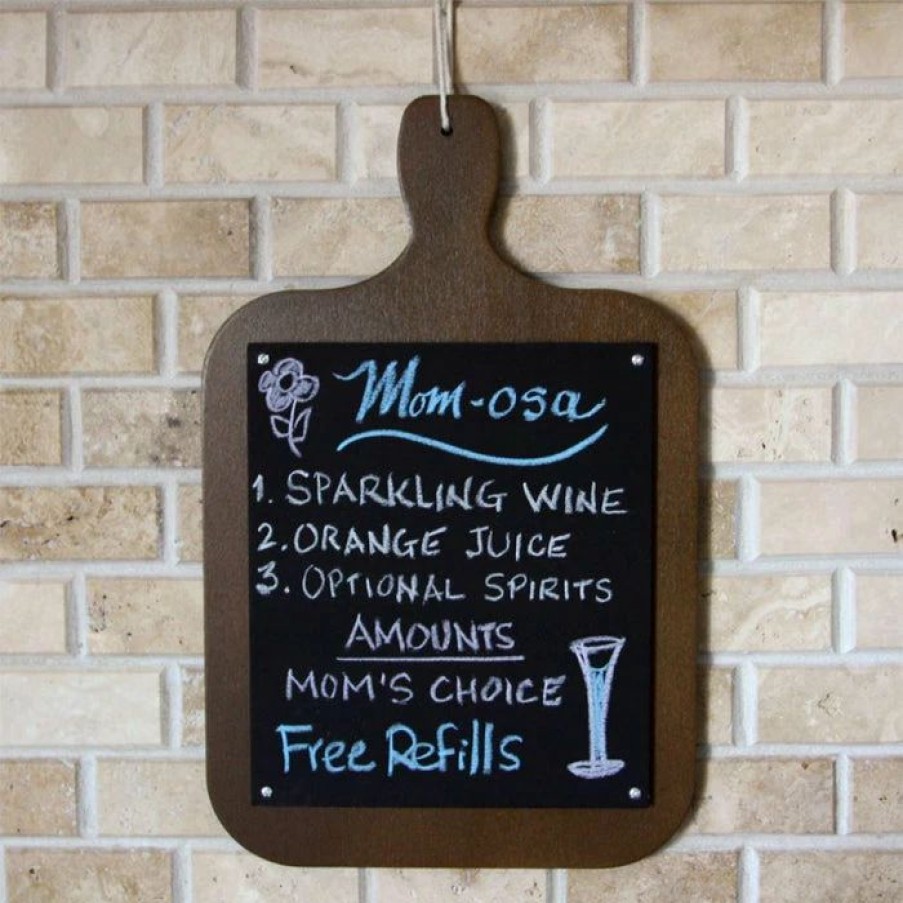 Mom-osa
1. SPARKLING WINE
2. ORANGE JUICE
3. OPTIONAL SPIRITS
AMOUNTS
MOM'S CHOICE
Free Refills